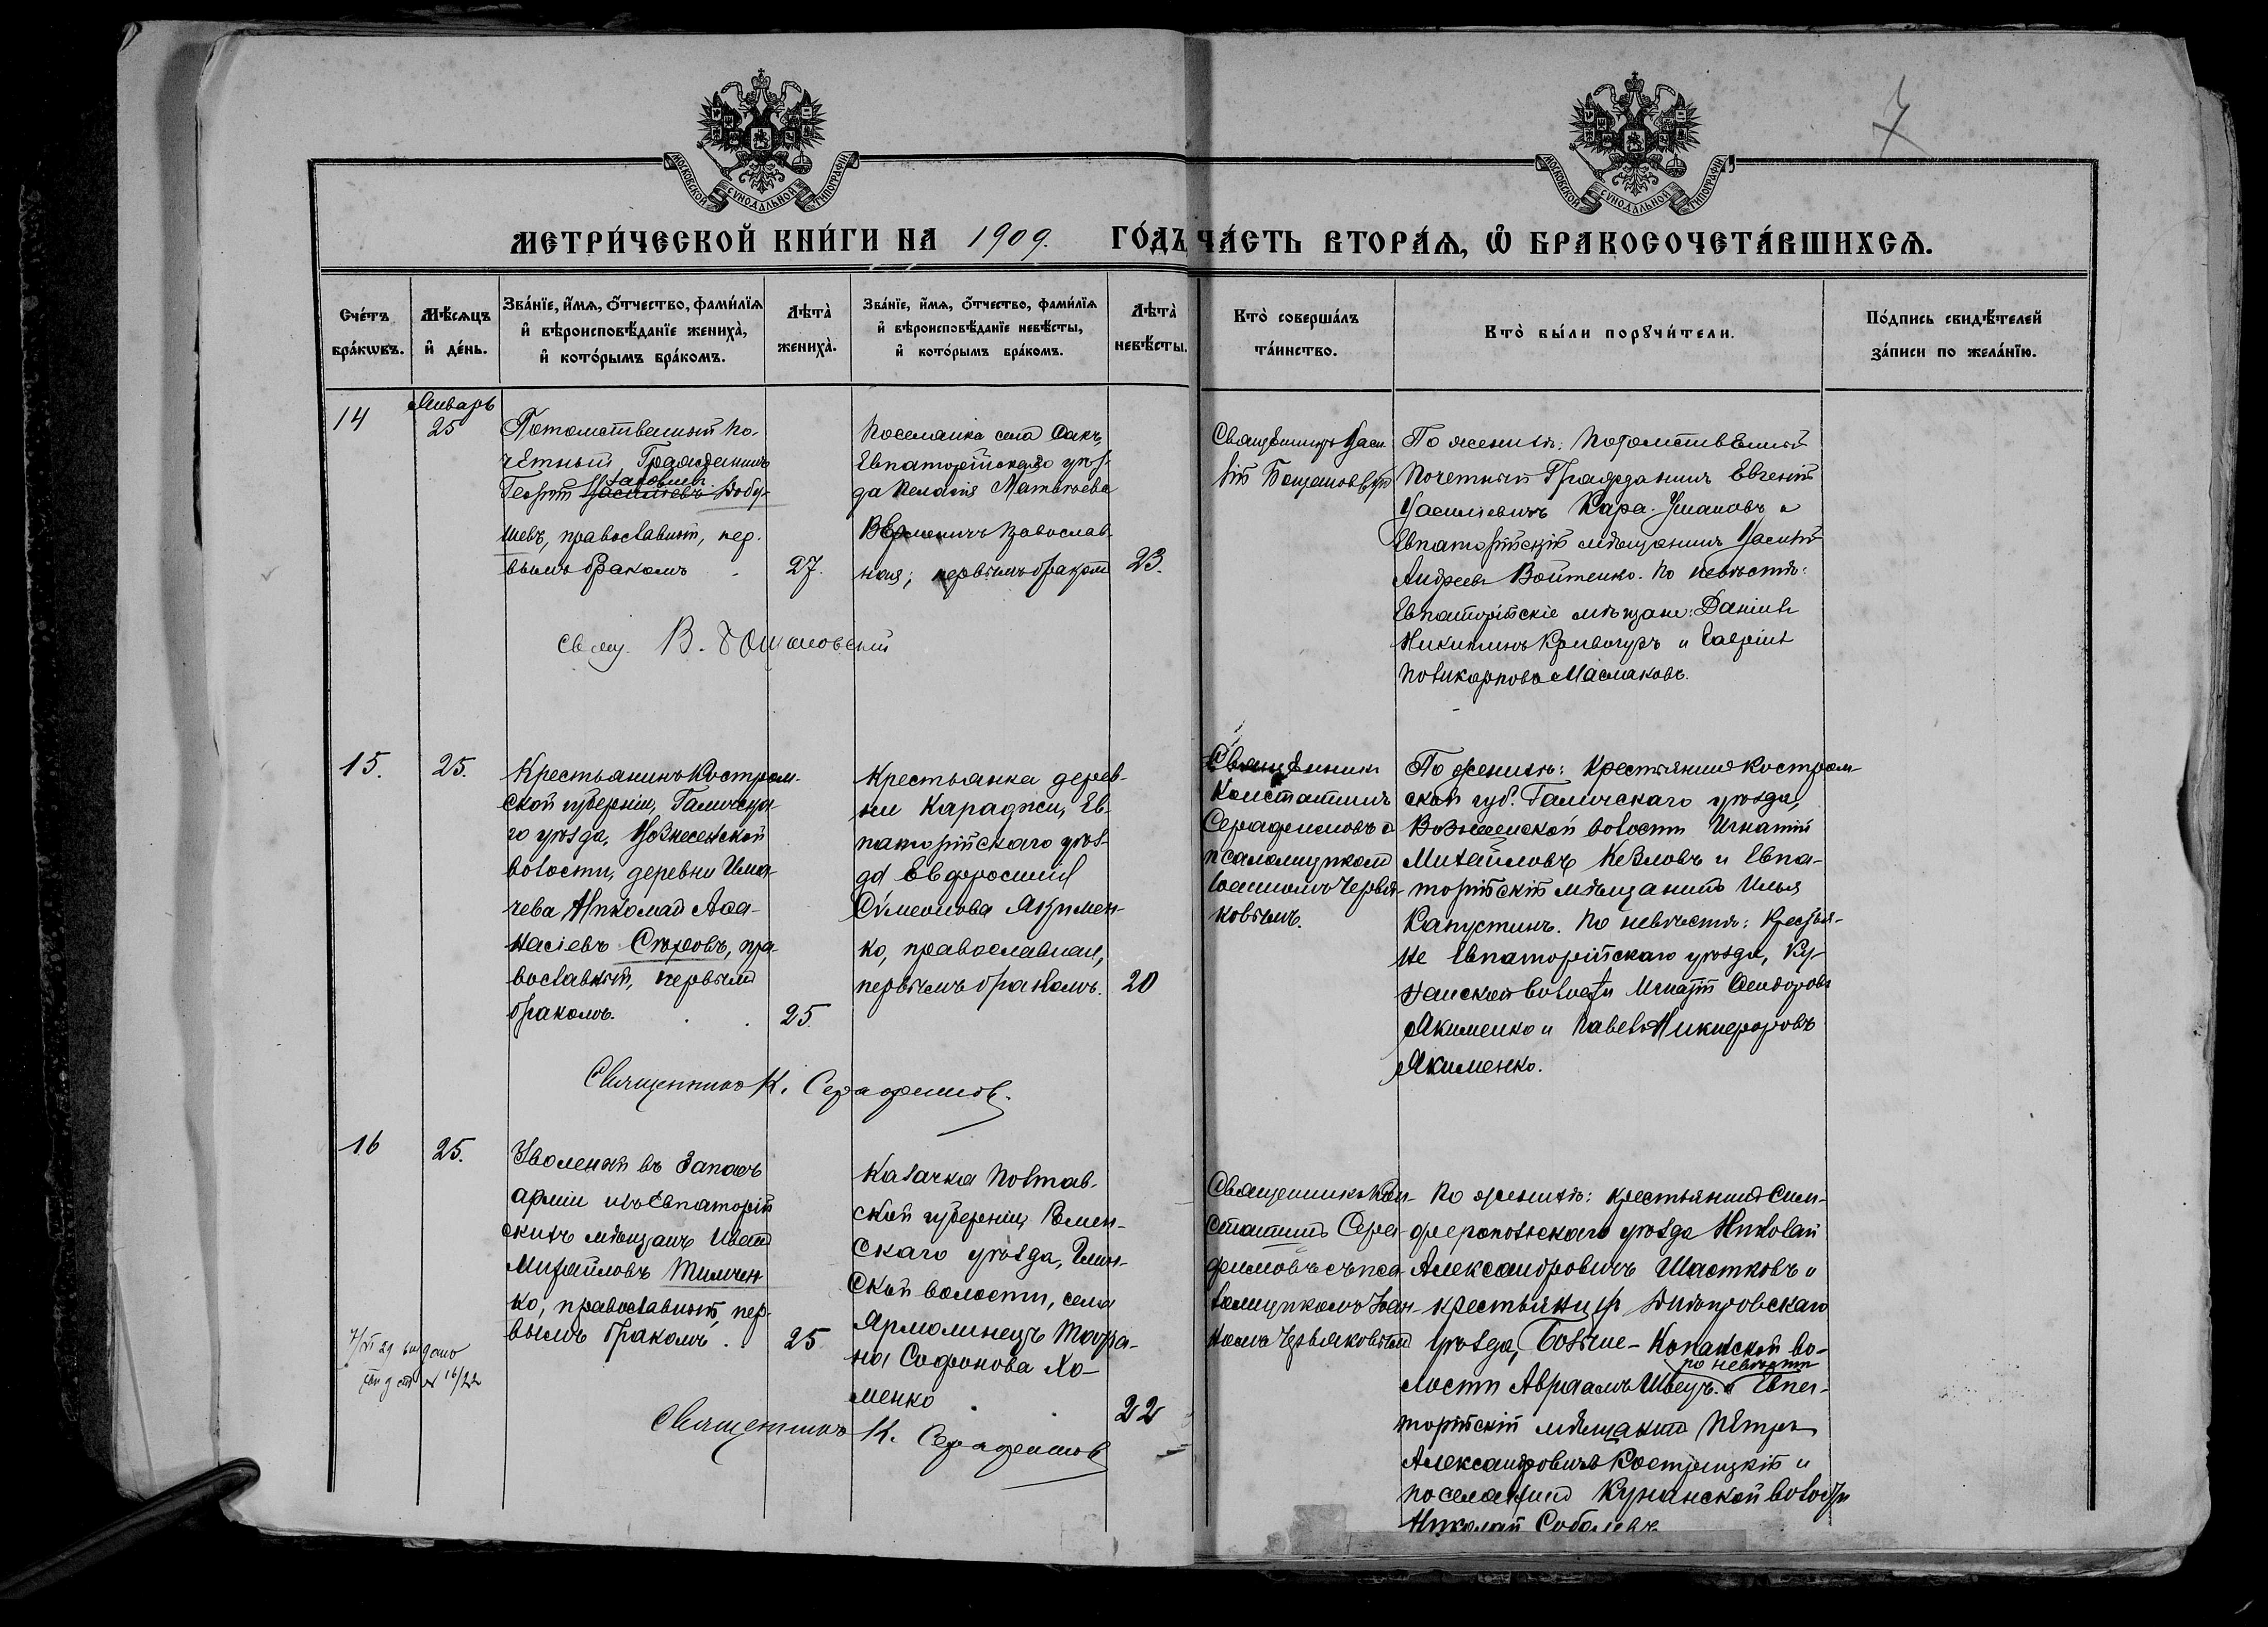 7
МОСКОВСКОЙ СѴНОДАЛЬНОЙ ТИПОГРАФІИ
МОСКОВСКОЙ СѴНОДАЛЬНОЙ ТИПОГРАФІИ
МЕТРИ́ЧЕСКОЙ КНИ́ГИ НА 1909. ГО́ДЪ
ЧА́СТЬ ВТОРА́Ѧ, Ѡ҆ БРАКОСОЧЕТА́ВШИХСѦ.
Сче́тъ
бра́кѡвъ.
Мѣ́сѧцъ
и҆ де́нь.
Зва́нїе, и҆́мѧ, ѻ҆́тчество, фами́лїѧ
и҆ вѣроисповѣ́данїе жениха̀,
и҆ кото́рымъ бра́комъ.
Лѣта̀
жениха̀.
Зва́нїе, и҆́мѧ, ѻ҆́тчество, фами́лїѧ
и҆ вѣроисповѣ́данїе невѣ́сты,
и҆ кото́рымъ бра́комъ.
Лѣта̀
невѣ́сты.
Кто̀ соверша́лъ
та́инство.
Кто̀ бы́ли порꙋчи́тели.
По́дпись свидѣ́телей
за́писи по жела́нїю.
14
Январь
25
Потомственный по-
четный Гражданинъ
Яковлев
Георгій Васильевъ Добу-
шевъ, православный, пер-
вымъ бракомъ
27.
Поселянка села Сакъ,
Евпаторійскаго уѣз-
да Пелагія Матвѣева
православ-
ная, первымъ бракомъ
23.
Священникъ Васи-
лій
По женихѣ: Потомственный
Почетный Гражданинъ Евгеній
Васильевичъ Кара-Умановъ и
Евпаторійскій мѣщанинъ Василій
Андреевъ Войтенко. По невѣстѣ:
Евпаторійскіе мѣщане: Даніилъ
Никитинъ Криворучъ и Гавріилъ
Поликарповъ Маслаковъ.
Свящ. В.
15.
25.
Крестьянинъ Костром-
ской губерніи, Галичска-
го уѣзда, Вознесенской
волости, деревни
чева Николай Аѳа-
насіевъ, пра-
вославный, первымъ
бракомъ.
25.
Крестьянка дерев-
ни Караджи, Ев-
паторійскаго уѣз-
да Евфросинія
Сѵмеонова Якимен-
ко, православная,
первымъ бракомъ.
20
Священникъ
Константинъ
Серафимовъ с
псаломщикомъ
Іоанномъ Червя-
ковымъ.
По женихѣ: крестьянинъ Костром-
ской губ. Галичскаго уѣзда,
Вознесенской волости Игнатій
Михайловъ Кезловъ и Евпа-
торійскій мѣщанинъ Илья
Капустинъ. По невѣстѣ: Крестья-
не Евпаторійскаго уѣзда, Ку-
нанской волости Игнатій Ѳеодоровъ
Якименко и Павелъ Никифоровъ
Якименко.
Священникъ К. Серафимовъ.
16
25.
Уволенный въ запасъ
арміи изъ Евпаторій-
скихъ мѣщанъ Иванъ
Михайловъ Тимчен-
ко, православный, пер-
вымъ бракомъ.
25
Казачка Полтав-
ской губерніи, Ромен-
скаго уѣзда, Глин-
ской волости, села
Ярмолинецъ Татья-
на Софонова Хо-
менко
22
Священникъ Кон-
стантинъ Сера-
фимовъ съ пса-
ломщикомъ Іоан-
номъ Червяковымъ
По женихѣ: крестьянинъ Сим-
феропольскаго уѣзда Николай
Александровичъ Шастковъ и
крестьянинъ Днѣпровскаго
уѣзда, Больше-Копанской во-
по невѣстѣ
лости Авраамъ Швецъ. Евпа-
торійскій мѣщанинъ Петръ
Александровичъ Кострицкій и
поселянинъ Кунанской волости
Николай Соболевъ
выдано
16/22
Священникъ К. Серафимовъ